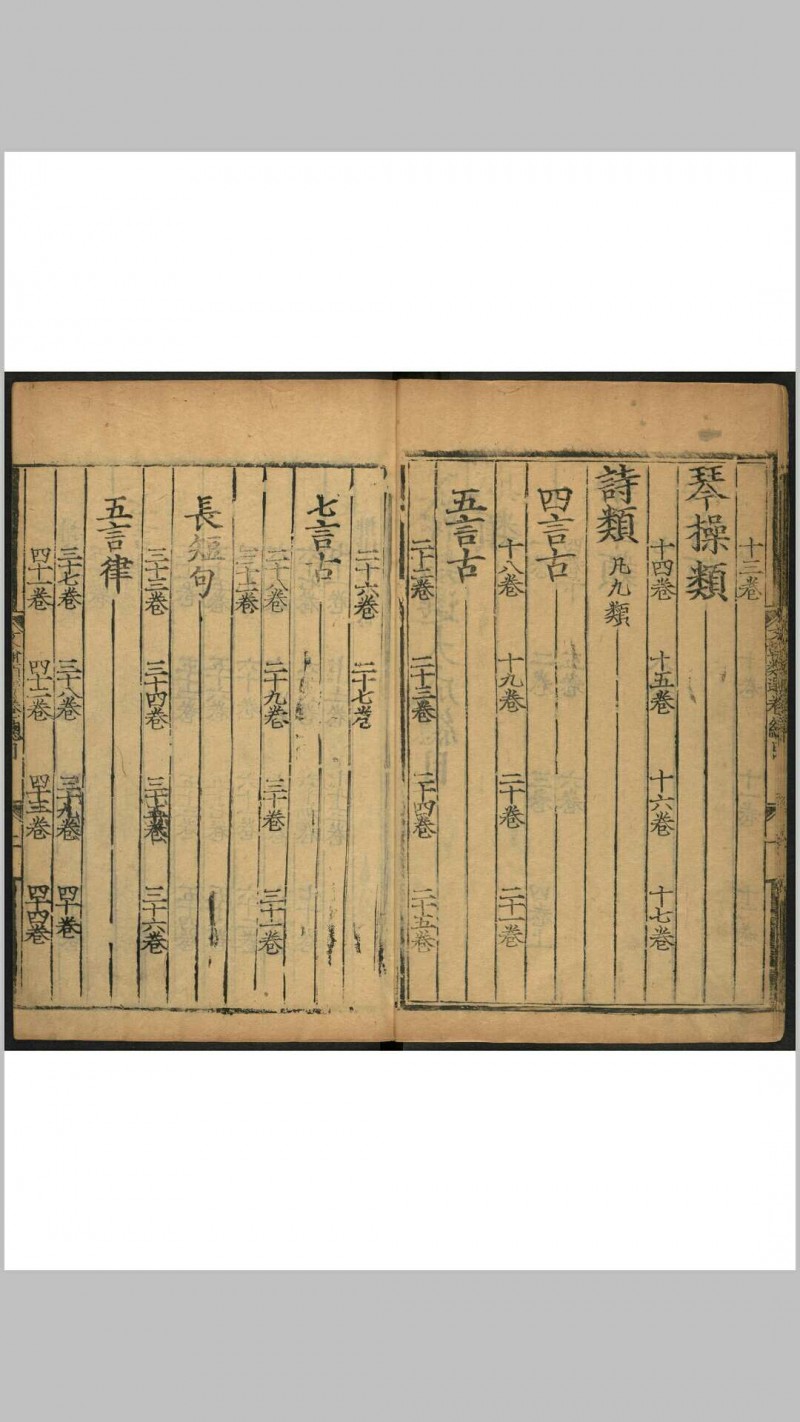 十三卷
琴操類
十四卷 十五卷 十六卷 十七卷
詩類 凡九類
四言古
十八卷 十九卷 二十卷 二十一卷
五言古
二十二卷 二十三卷 二十四卷 二十五卷
二十六卷 二十七卷
七言古
二十八卷 二十九卷 三十卷 三十一卷
三十二卷
長短句
三十三卷 三十四卷 三十五卷 三十六卷
五言律
三十七卷 三十八卷 三十九卷 四十卷
四十一卷 四十二卷 四十三卷 四十四卷